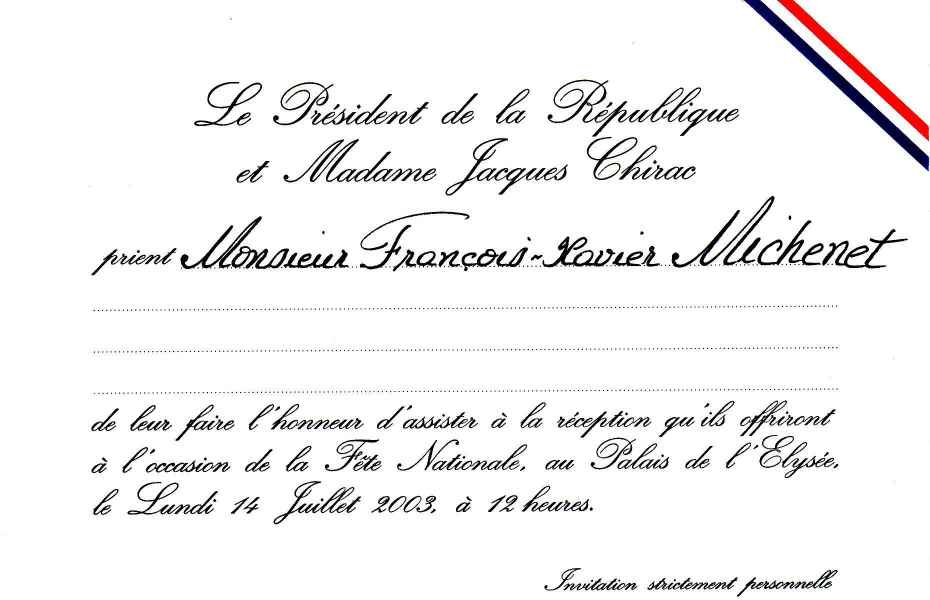 Le Président de la République
et Madame Jacques Chirac
prient Monsieur François-Xavier Michenet
de leur faire l'honneur d'assister à la réception qu'ils offriront
à l'occasion de la Fête Nationale, au Palais de l'Elysée,
le Lundi 14 Juillet 2003, à 12 heures.
Invitation strictement personnelle